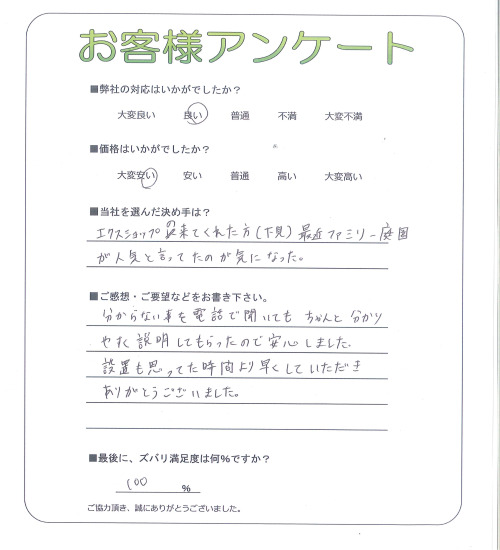 お客様アンケート
■弊社の対応はいかがでしたか？
大変良い 良い 普通 不満 大変不満
■価格はいかがでしたか？
大変安い 安い 普通 高い 大変高い
■当社を選んだ決め手は？
エクスショップの来てくれた方(下見)最近ファミリー庭園
が人気と言ってたのが気になった。
■ご感想・ご要望などをお書き下さい。
分からない事を電話で聞いても ちゃんと分かり
やすく説明してもらったので安心しました.
設置も思ってた時間より早くしていただき
ありがとうございました。
■最後に、ズバリ満足度は何％ですか？
100 %
ご協力頂き、誠にありがとうございました。